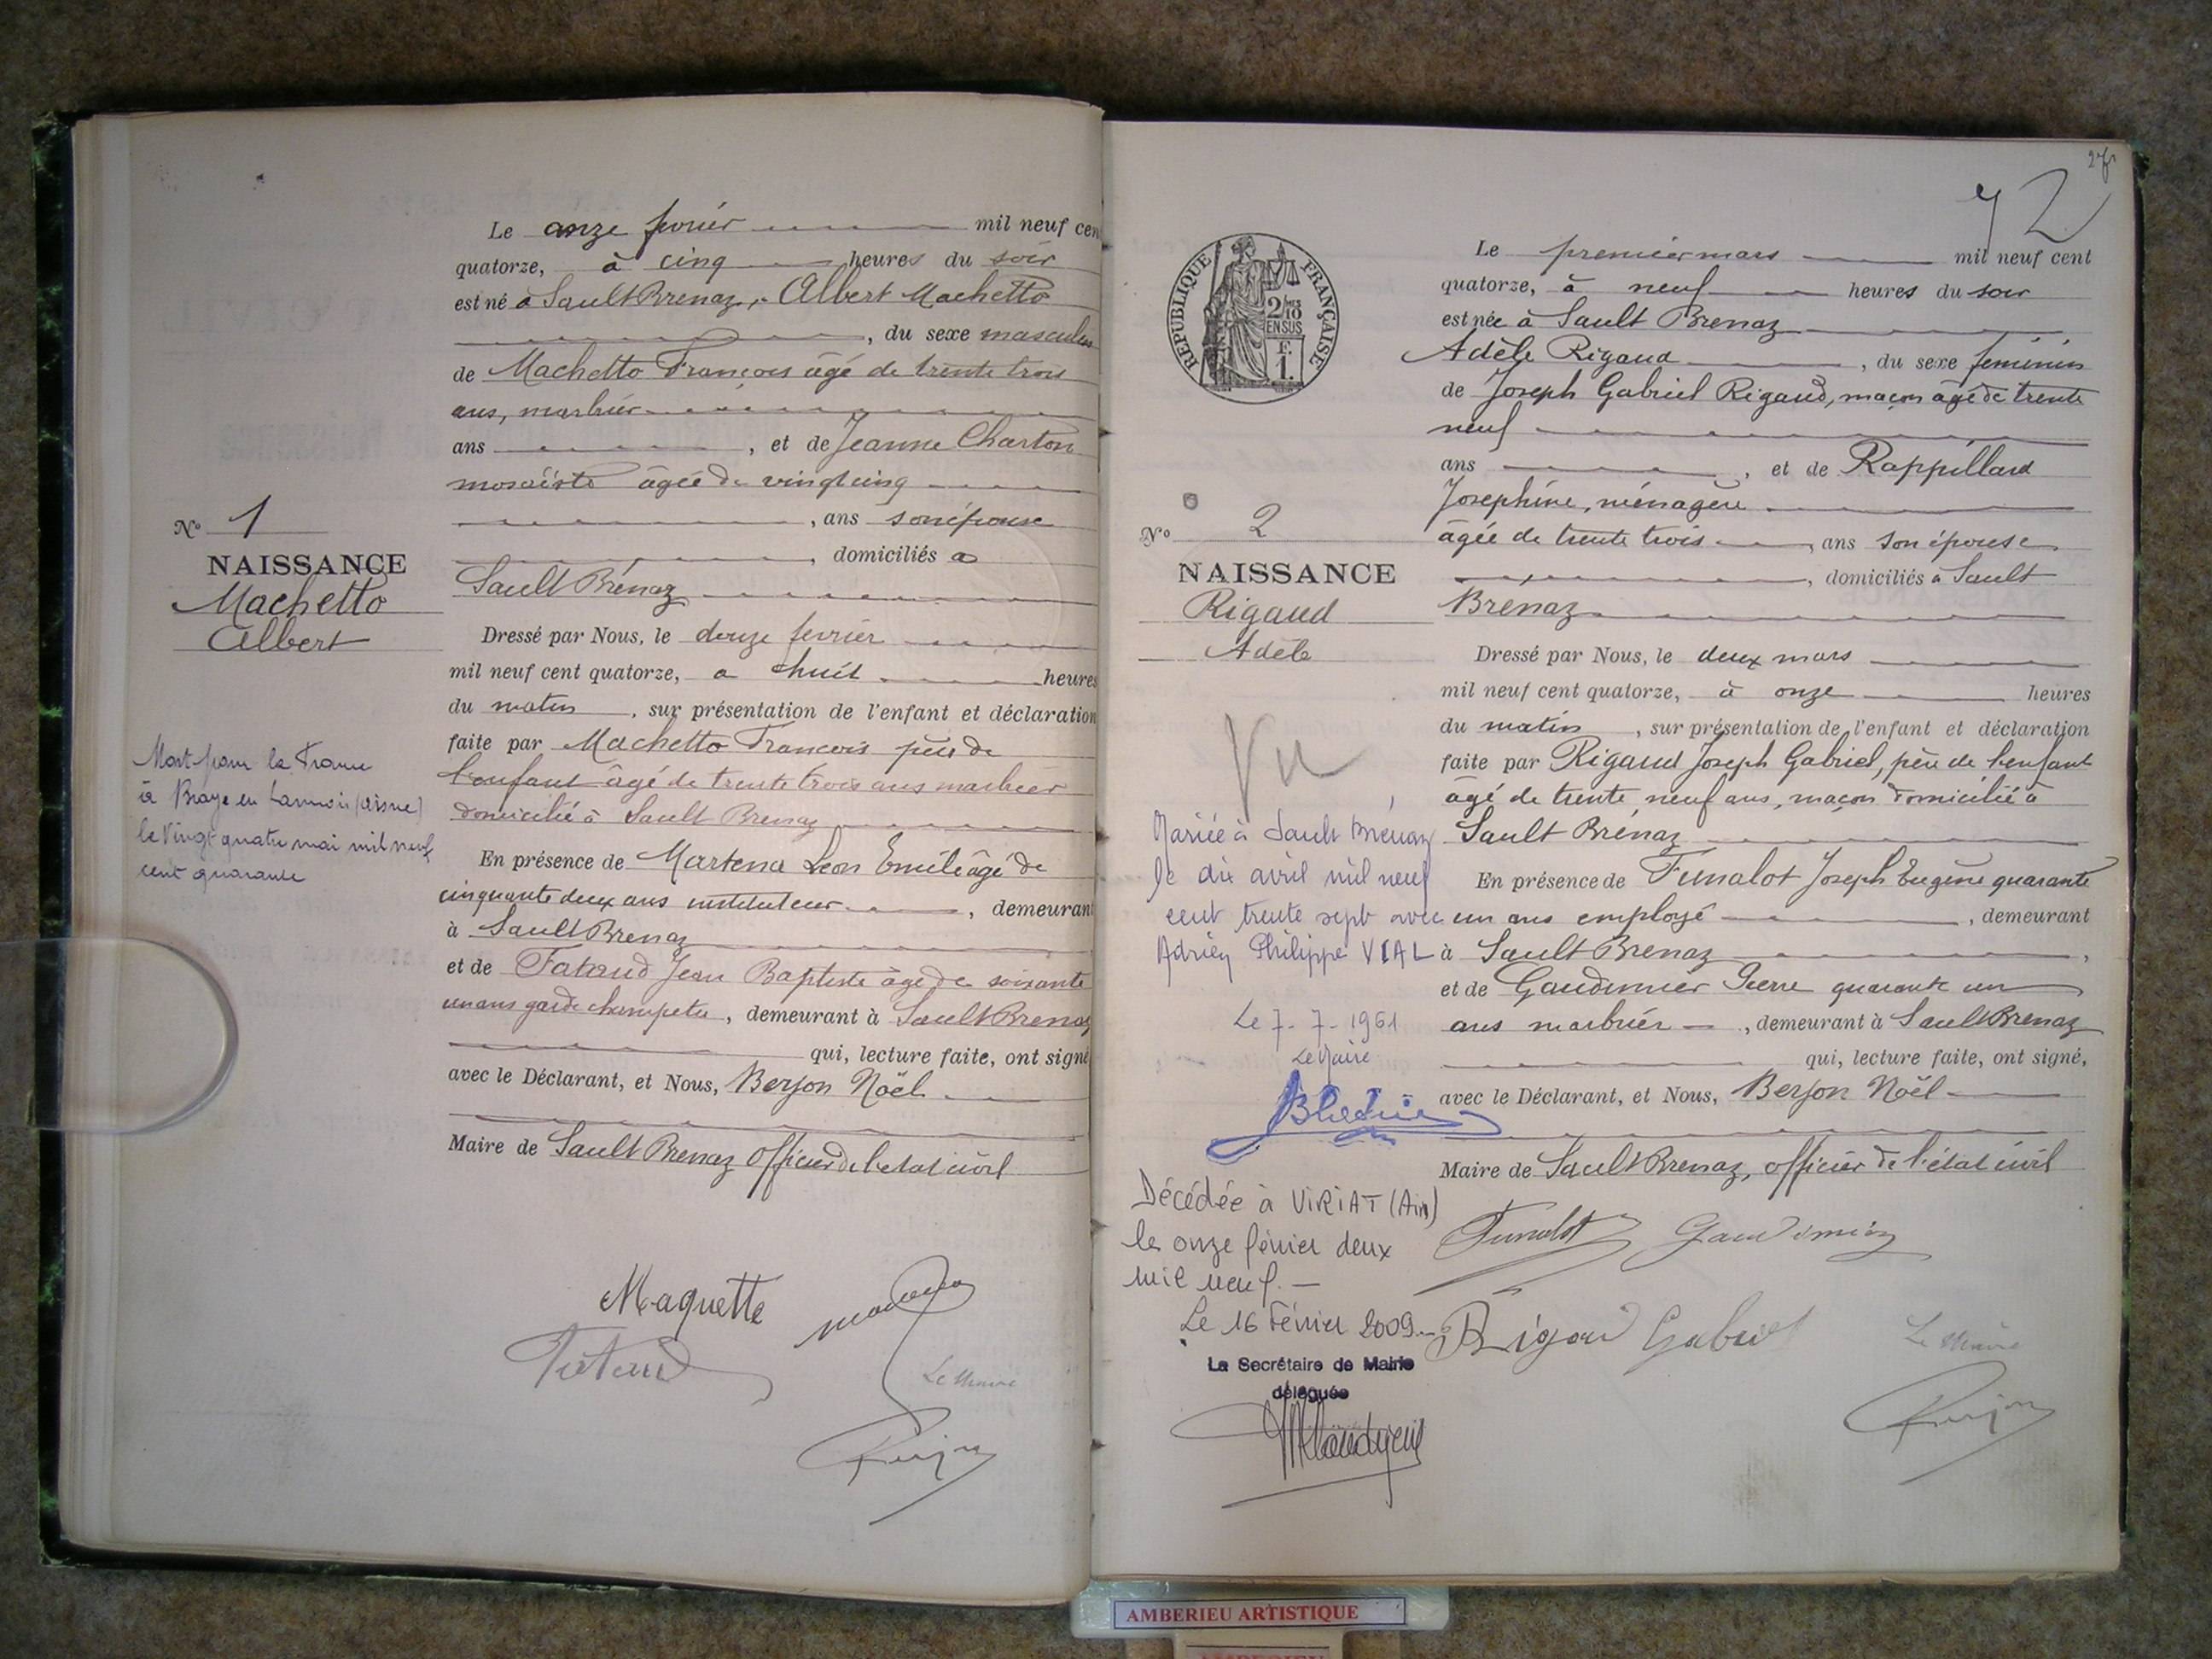 Le onze février mil neuf cen
quatorze, à cinq heures du soir
est né à Sault Brenaz, Albert Machetto
, du sexe masculin
de Machetto François âgé de trente trois
ans, marbrier
ans , et de Jeanne Charton
mosaïste âgée de vingt cinq
, ans son épouse
, domiciliés à
Sault Brénaz
Dressé par Nous, le douze fevrier
mil neuf cent quatorze, a huit heures
du matin , sur présentation de l'enfant et déclaration
faite par Machetto Francois père de
l'enfant âgé de trente trois ans marbrier
domicilié à Sault Brenaz
En présence de Martena Leon Emile âgé de
cinquante deux ans instituteur , demeurant
à Sault Brenaz
et de Jean Baptiste âgé de soixante
un ans garde champetre , demeurant à Sault Brenaz
qui, lecture faite, ont signé
avec le Déclarant, et Nous, Berjon Noël
Maire de Sault Brenaz officier de l'etat civil
No 1
NAISSANCE
Machetto
Albert
Mort pour la France
à Braye en Lannois (aisne)
le Vingt quatre mai mil neuf
cent quarante
Maquette
Le Maire
27
72
RÉPUBLIQUE FRANÇAISE
2/10 EN SUS
F.
1.
Le premier mars mil neuf cent
quatorze, à neuf heures du soir
est née à Sault Brenaz
Adèle Rigaud , du sexe feminin
de Joseph Gabriel Rigaud, maçon âgé de trente
neuf
ans , et de Rappillard
Josephine, ménagère
âgée de trente trois , ans son épouse
, domiciliés à Sault
Brenaz
Dressé par Nous, le deux mars
mil neuf cent quatorze, à onze heures
du matin , sur présentation de l'enfant et déclaration
faite par Rigaud Joseph Gabriel, père de l'enfant
âgé de trente neuf ans, maçon domicilié à
Sault Brénaz
En présence de Funalot Joseph Eugène quarante
un ans employé , demeurant
à Sault Brenaz ,
et de Gaudimier Pierre quarante un
ans marbrier , demeurant à Sault Brenaz
qui, lecture faite, ont signé,
avec le Déclarant, et Nous, Berjon Noël
Maire de Sault Brenaz, officier de l'état civil
No 2
NAISSANCE
Rigaud
Adèle
Vu
Mariée à Sault Brénaz
le dix avril mil neuf
cent trente sept avec
Adrien Philippe VIAL
Le 7-7-1961
Le Maire
Décédée à VIRIAT (Ain)
le onze février deux
mil neuf.-
Le 16 Février 2009.-
La Secrétaire de Mairie
déléguée
Funalot Gaudimier
Rigaud Gabriel
Le Maire
AMBERIEU ARTISTIQUE
AMBERIEU